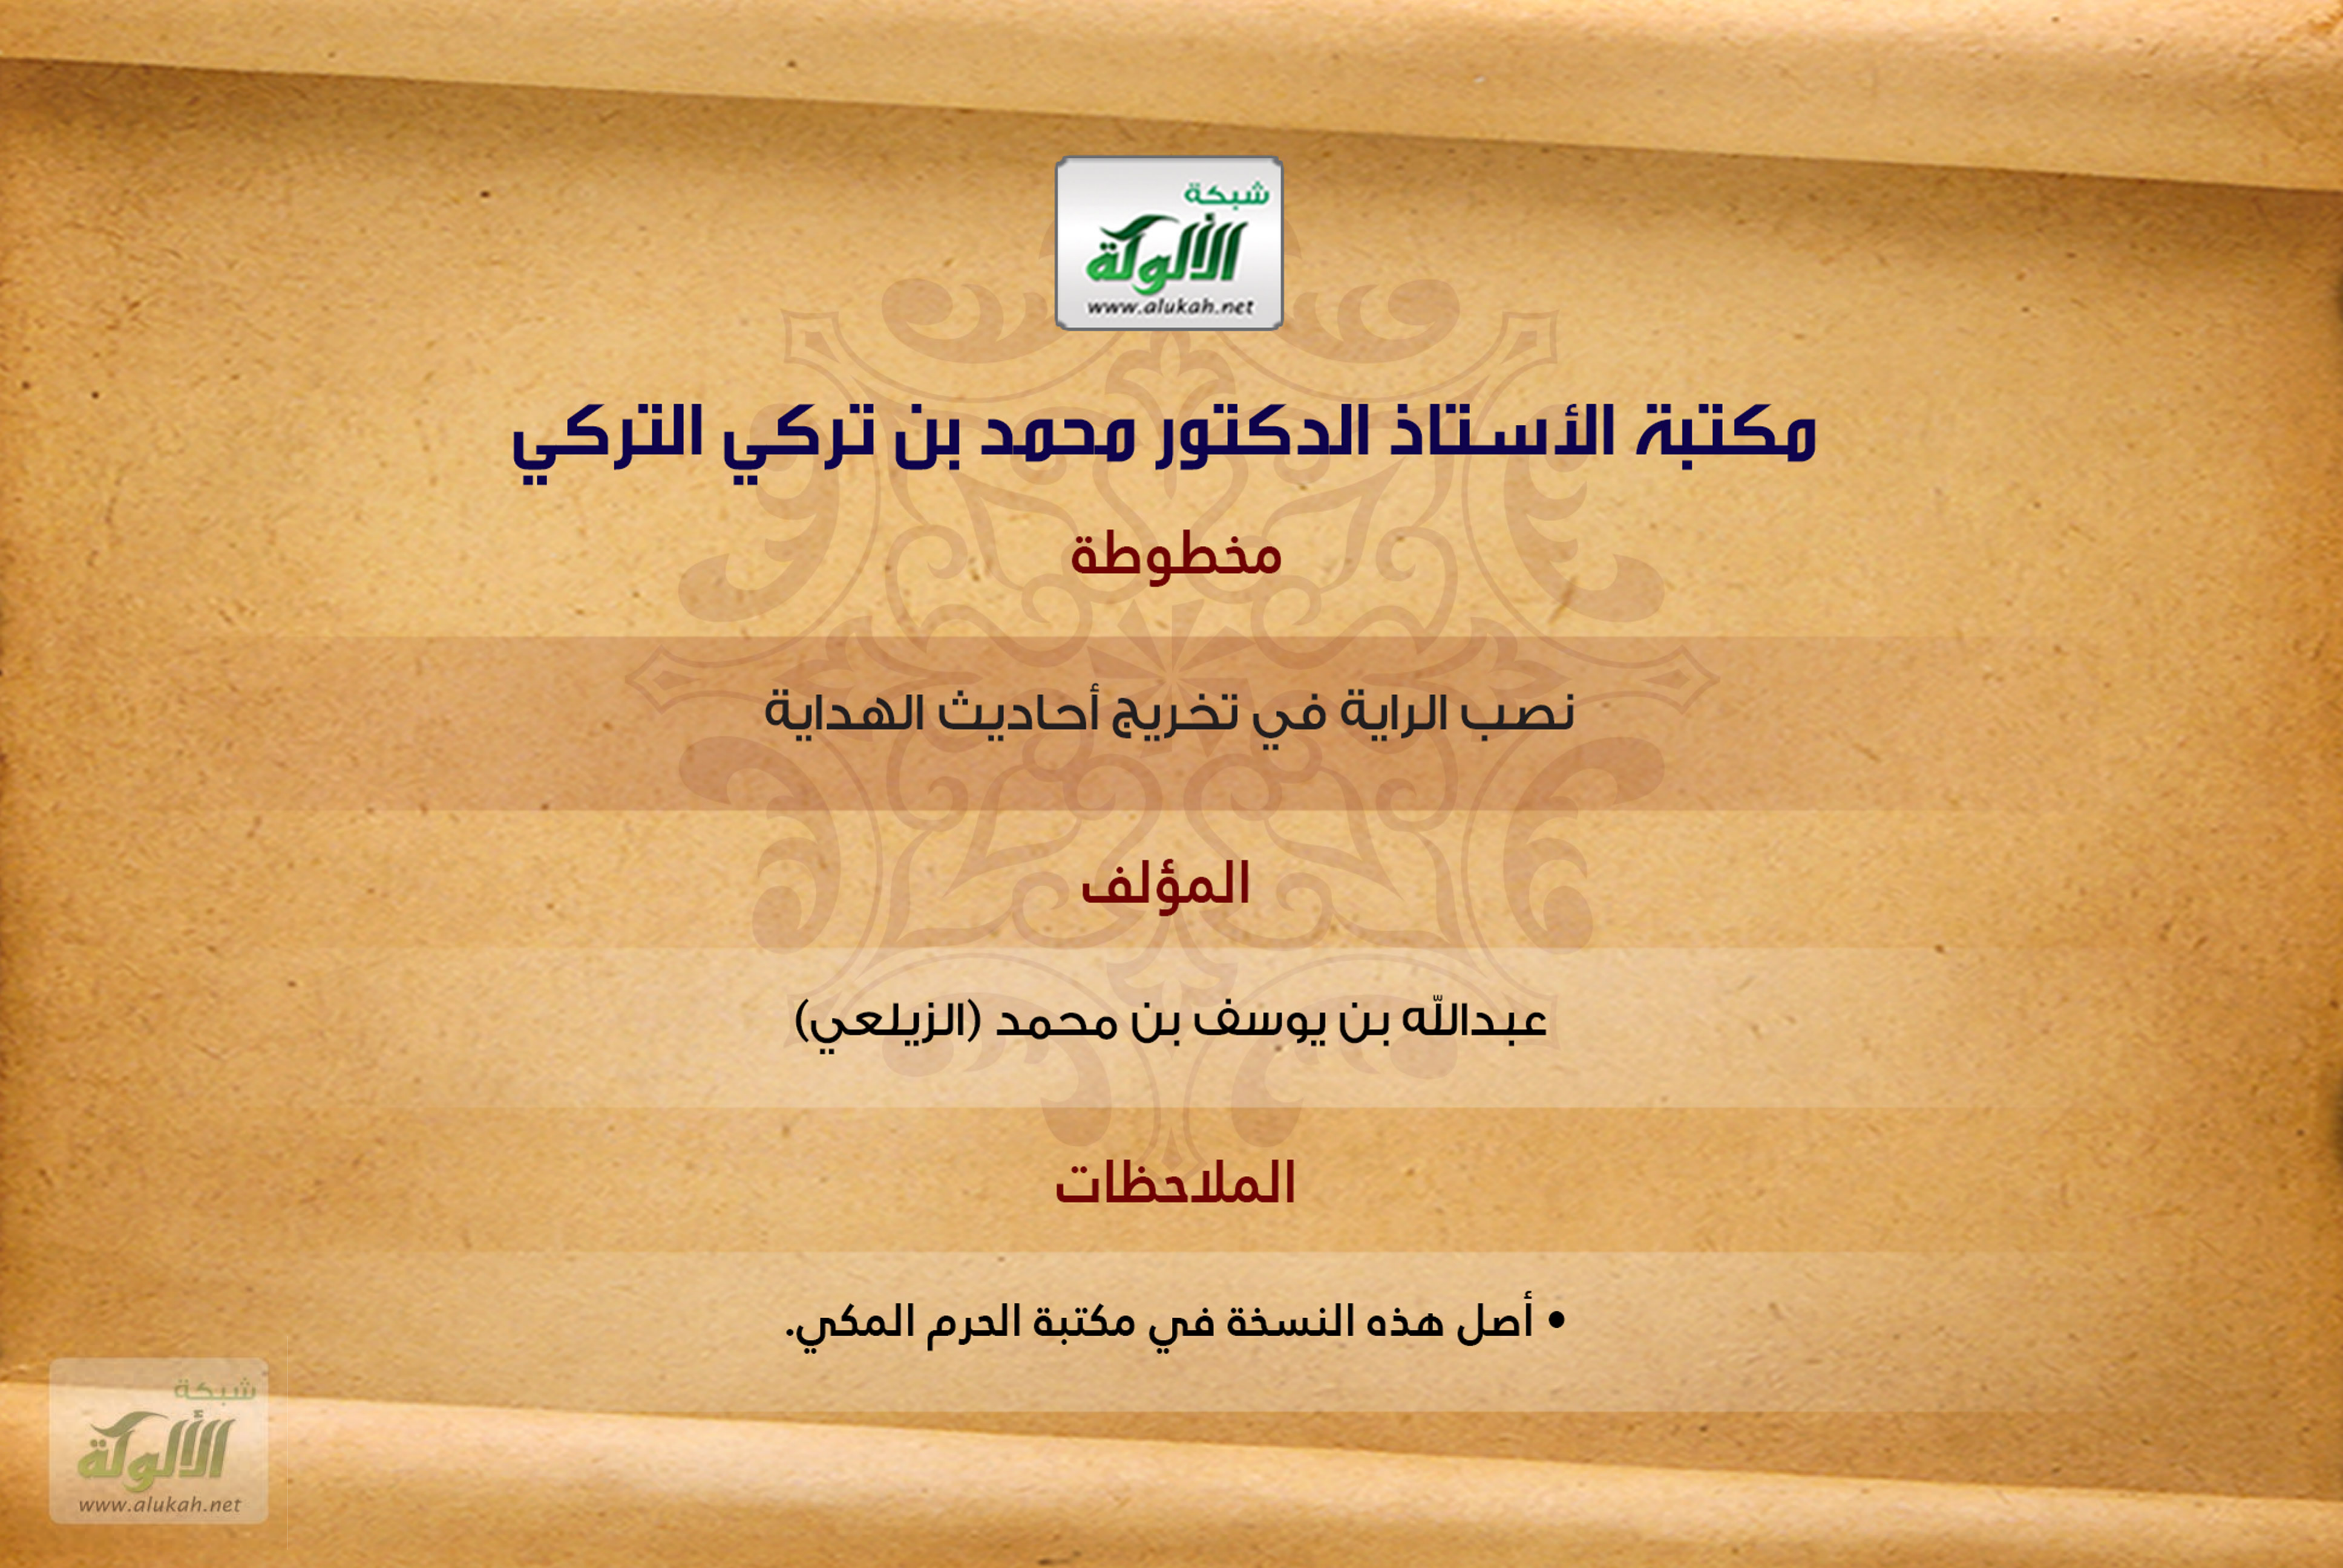 شبكة
الألوكة
www.alukah.net
مكتبة الأستاذ الدكتور محمد بن تركي التركي
مخطوطة
نصب الراية في تخريج أحاديث الهداية
المؤلف
عبدالله بن يوسف بن محمد (الزيلعي)
الملاحظات
• أصل هذه النسخة في مكتبة الحرم المكي.
شبكة
الألوكة
www.alukah.net